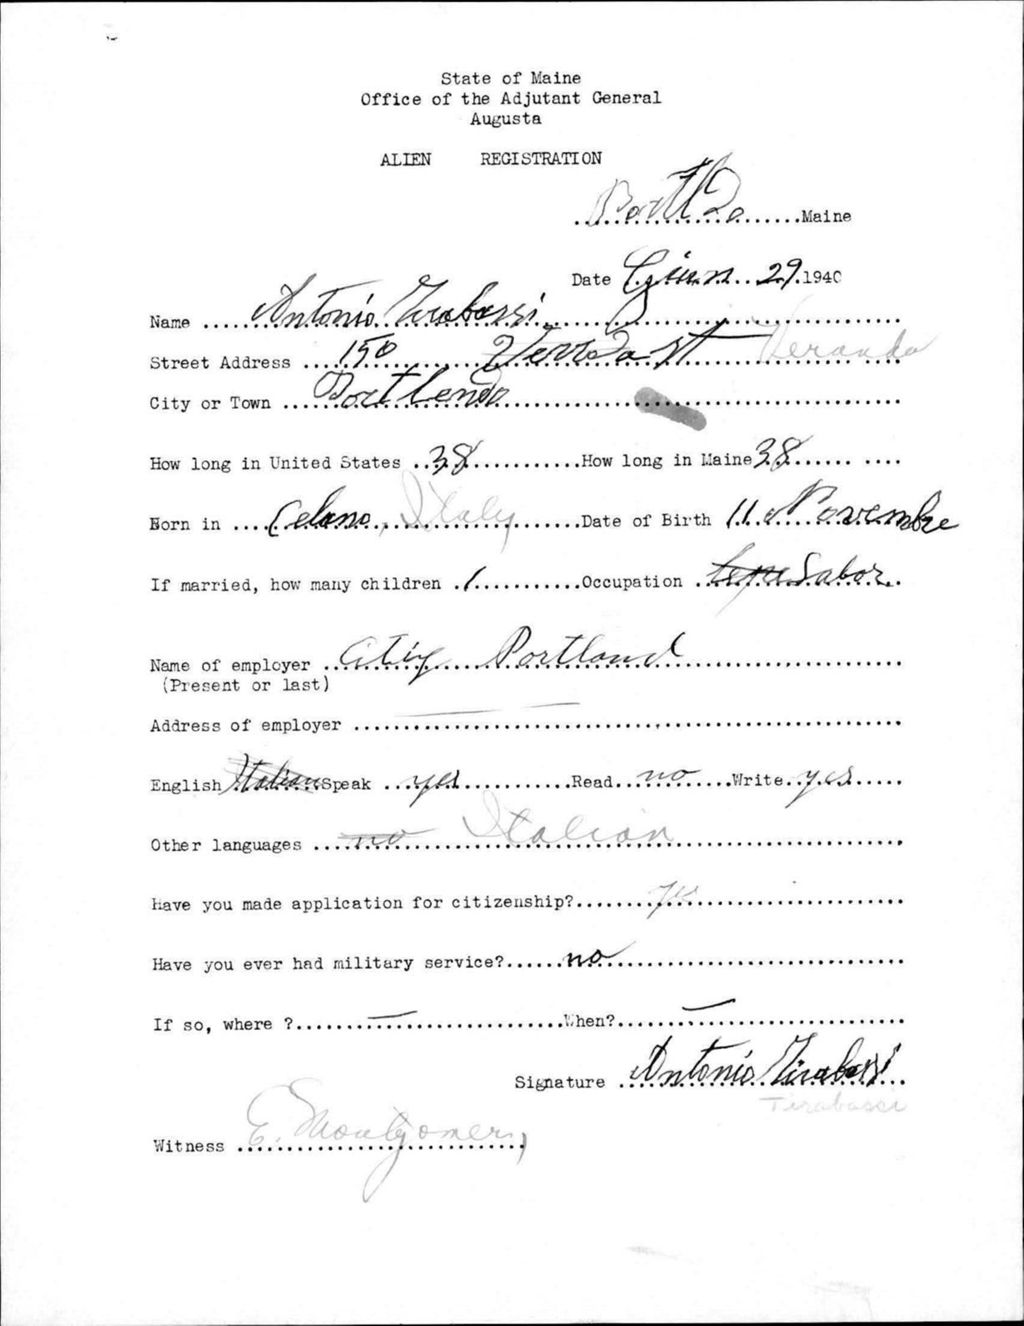 State of Maine
Office of the Adjutant General
Augusta
ALIEN REGISTRATION
Maine
Date Giun 29 1940
Name Antonio Tirabassi
Street Address 150 Verrda st Veranda
City or Town Portlendo
How long in United States 38 How long in Maine 38
Born in Celano, Italy Date of Birth 11 Novembre
If married, how many children 1 Occupation Labor
Name of employer City Portland
(Present or last)
Address of employer —
English Italian Speak yes Read no Write yes
Other languages no Italian
Have you made application for citizenship? yes
Have you ever had military service? no
If so, where ? — When? —
Signature Antonio Tirabassi
Tirabassi
Witness E. Montgomery